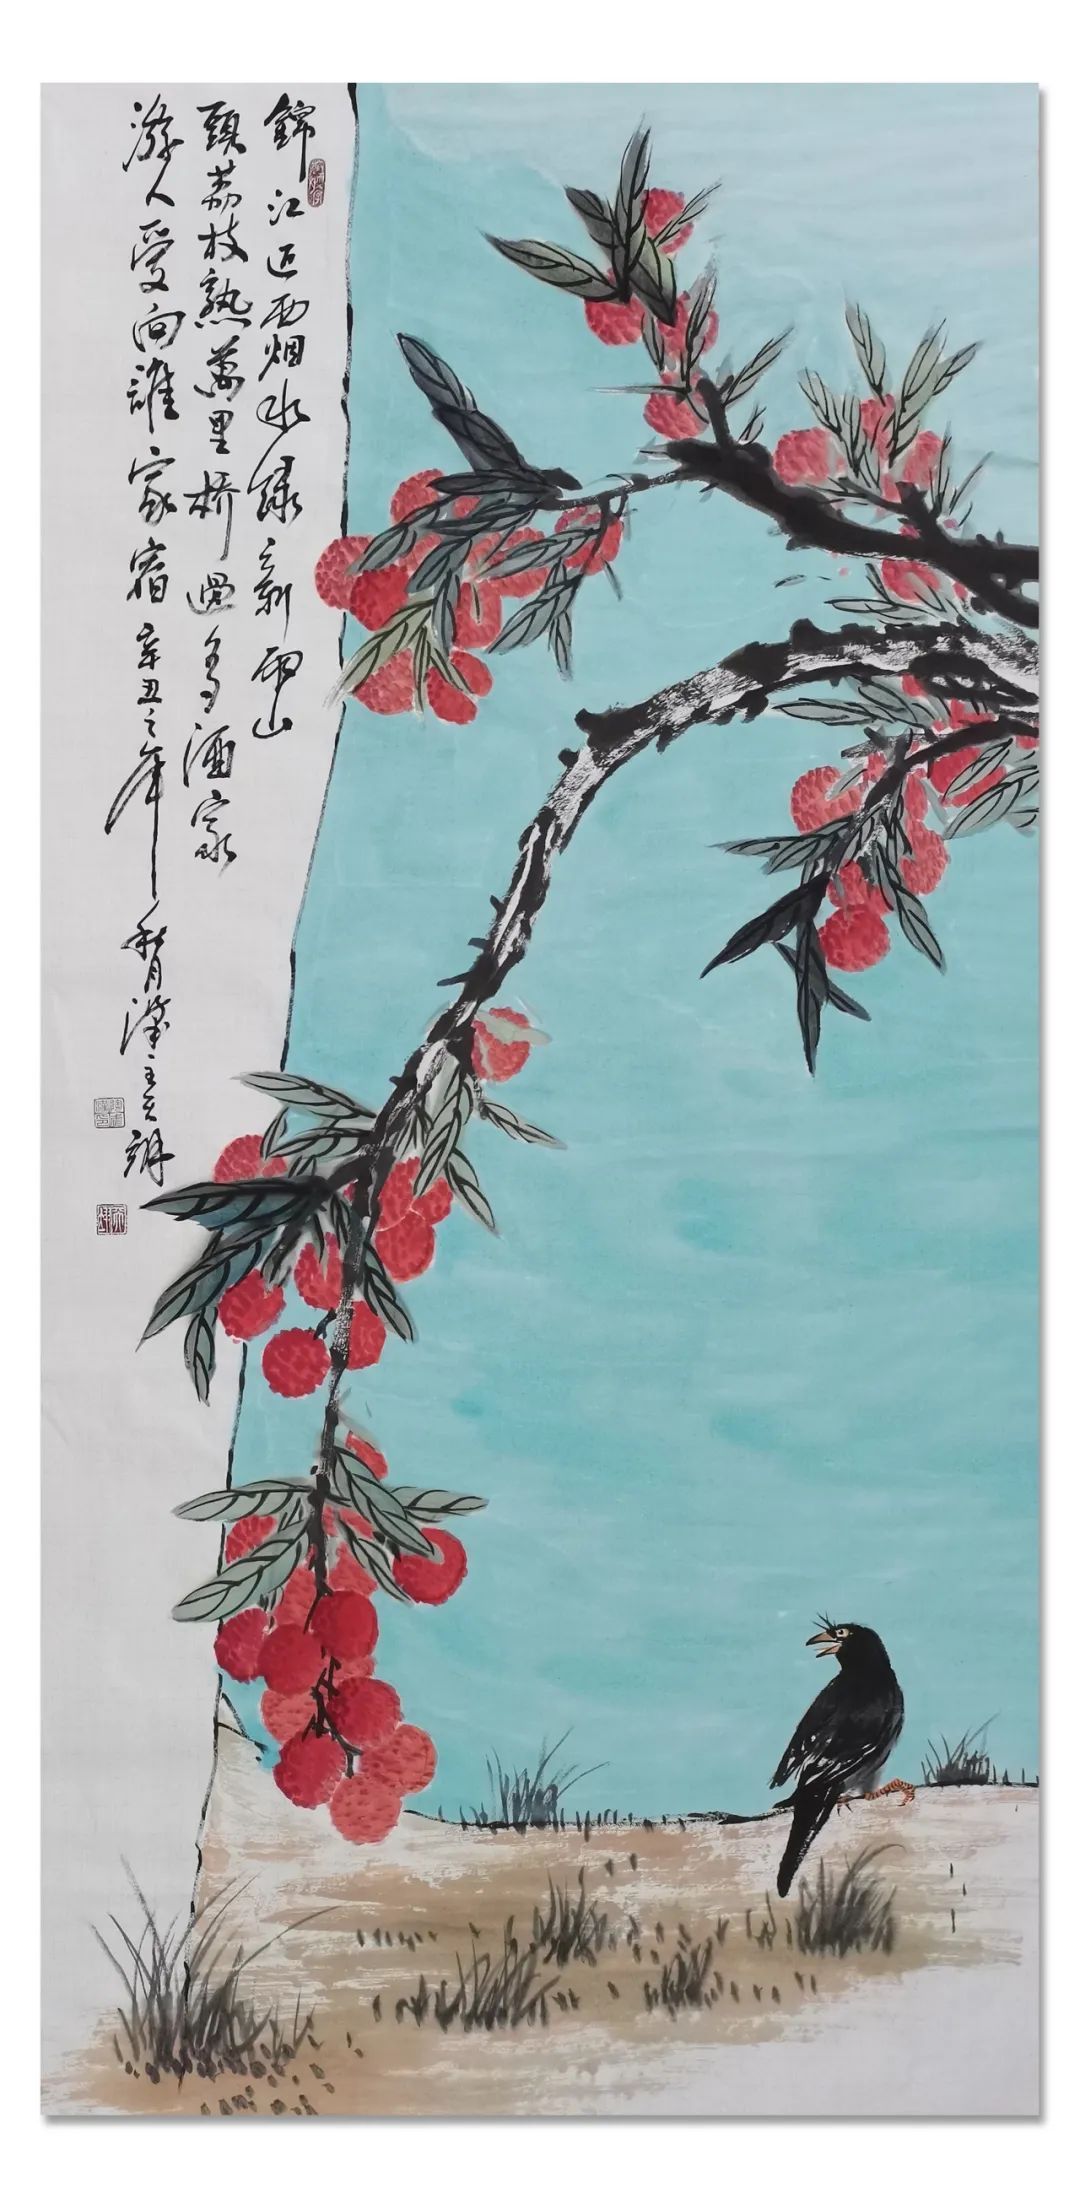 錦江近西烟水綠新雨山
頭荔枝熟萬里桥邊多酒家
游人愛向誰家宿 辛丑之年秋月